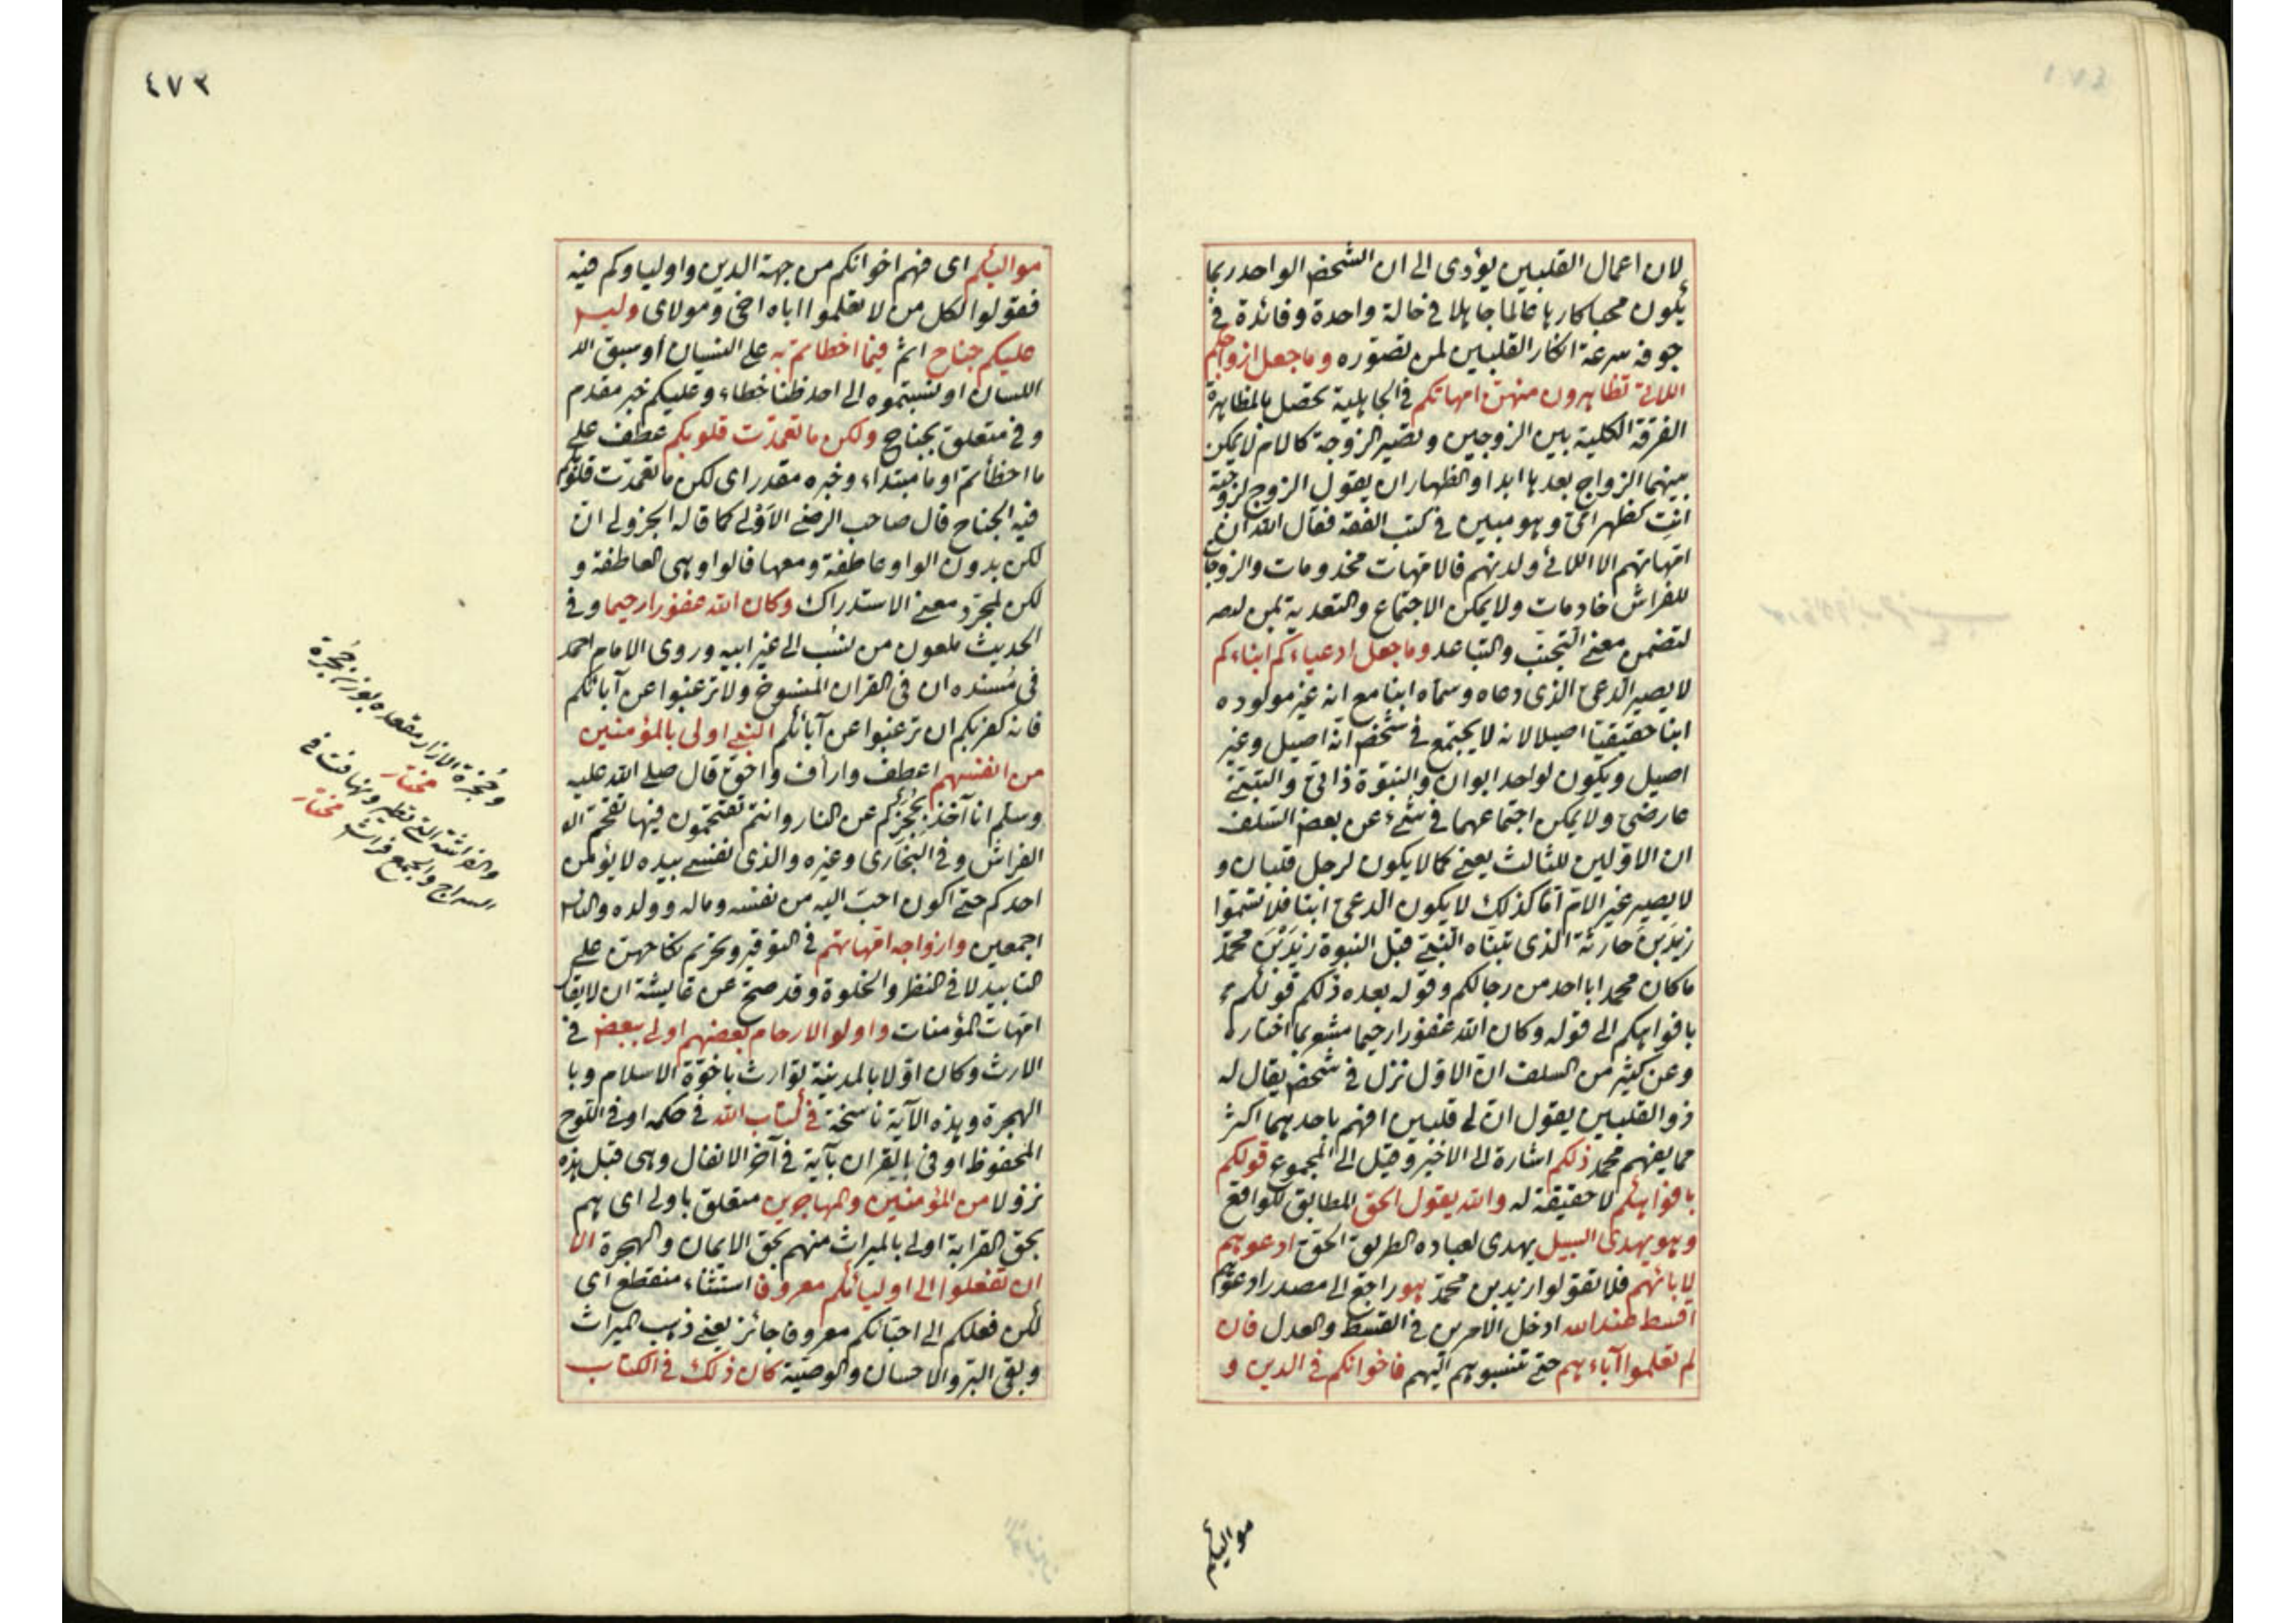 لان اعمال القلبين يؤدى الى ان الشخص الواحد ربما
يكون محبا كارها عالما جاهلا فى حالة واحدة وفائدة فى
جوفه سرعة انكار القلبين لمن تصوره وما جعل ازواجكم
اللائى تظاهرون منهن امهاتكم فى الجاهلية تحصل بالمظاهرة
الفرقة الكلية بين الزوجين وتصير الزوجة كالام لا يمكن
بينهما الزواج بعدها ابدا والظهار ان يقول الزوج لزوجته
انتِ كظهر امى وهو مبين فى كتب الفقه فقال الله ان
امهاتهم الا اللائى ولدنهم فالامهات مخدومات والزوجات
للفراش خادمات ولا يمكن الاجتماع والتعدية بمن
لتضمن معنى التجنب والتباعد وما جعل ادعياءكم ابناءكم
لا يصير الدعى الذى دعاه وسماه ابنا مع انه غير مولوده
ابنا حقيقيا اصيلا لانه لا يجتمع فى شخص انه اصيل وغير
اصيل ويكون لواحد ابوان والبنوة ذاتى والتبنى
عارضى ولا يمكن اجتماعهما فى شىء عن بعض السلف
ان الاولين للثالث يعنى كما لا يكون لرجل قلبان و
لا يصير غير الام اما كذلك لا يكون الدعى ابنا فلا تسموا
زيدَ بنَ حارثة الذى تبناه النبى قبل النبوة زيدَ بْنَ محمد
ما كان محمد ابا احد من رجالكم وقوله بعده ذلكم قولكم
بافواهكم الى قوله وكان الله غفورا رحيما مشعر بما اختاره
وعن كثير من السلف ان الاول نزل فى شخص يقال له
ذو القلبين يقول ان لى قلبين افهم باحدهما اكثر
مما يفهم محمد ذلكم اشارة الى الاخير وقيل الى المجموع قولكم
بافواهكم لا حقيقة له والله يقول الحق المطابق للواقع
وهو يهدى السبيل يهدى لعباده الطريق الحق ادعوهم
لابائهم فلا تقولوا زيد بن محمد هو راجع الى مصدر ادعوهم
اقسط عند الله ادخل الامرين فى القسط والعدل فان
لم تعلموا آباءهم حتى تنسبوهم اليهم فاخوانكم فى الدين و
مواليكم
٤٧٣
مواليكم اى فهم اخوانكم من جهة الدين واولياؤكم فيه
فقولوا لكل من لا تعلموا اباه اخى ومولاى وليس
عليكم جناح اثم فيما اخطأتم به على النسيان او سبق الـ
اللسان او نسبتموه الى احد ظنا خطاء وعليكم خبر مقدم
وفى متعلق بجناح ولكن ما تعمدت قلوبكم عطف على
ما اخطأتم او ما مبتداء وخبره مقدر اى لكن ما تعمدت قلوبكم
فيه الجناح قال صاحب الرضى الاَوْلى كما قاله الجزولى ان
لكن بدون الواو عاطفة ومعها فالواو هى العاطفة و
لكن لمجرد معنى الاستدراك وكان الله غفورا رحيما وفى
الحديث ملعون من نسب الى غير ابيه وروى الامام احمد
فى مُسنده ان فى القران المنسوخ ولا ترغبوا عن آبائكم
فانه كفر بكم ان ترغبوا عن آبائكم النبى اولى بالمؤمنين
من انفسهم اعطف وارأف واحق قال صلى الله عليه
وسلم انا آخذ بحُجَزِكم عن النار وانتم تقتحمون فيها تقحم الـ
الفراش وفى البخارى وغيره والذى نفسى بيده لا يؤمن
احدكم حتى اكون احب اليه من نفسه وماله وولده والناس
اجمعين وازواجه امهاتهم فى التوقير وتحريم نكاحهن على
التابيد لا فى النظر والخلوة وقد صح عن عايشة ان لا يقال
امهات المؤمنات واولو الارحام بعضهم اولى ببعض فى
الارث وكان اولا بالمدينة توارث باخوة الاسلام وبا
الهجرة وهذه الآية ناسخة فى كتاب الله فى حكمه او فى اللوح
المحفوظ او فى القران بآية فى آخر الانفال وهى قبل هذه
نزولا من المؤمنين والمهاجرين متعلق باولى اى هم
بحق القرابة اولى بالميراث منهم بحق الايمان والهجرة الا
ان تفعلوا الى اوليائكم معروفا استثناء منقطع اى
لكن فعلكم الى احبائكم معروفا جائز يعنى ذهب الميراث
وبقى البر والاحسان والوصية كان ذلك فى الكتاب
وحُجزة الازار مقعده بوزن حُجرة
مختار
والفراشة التى تطير وتهافت فى
السراج والجمع فراش مختار